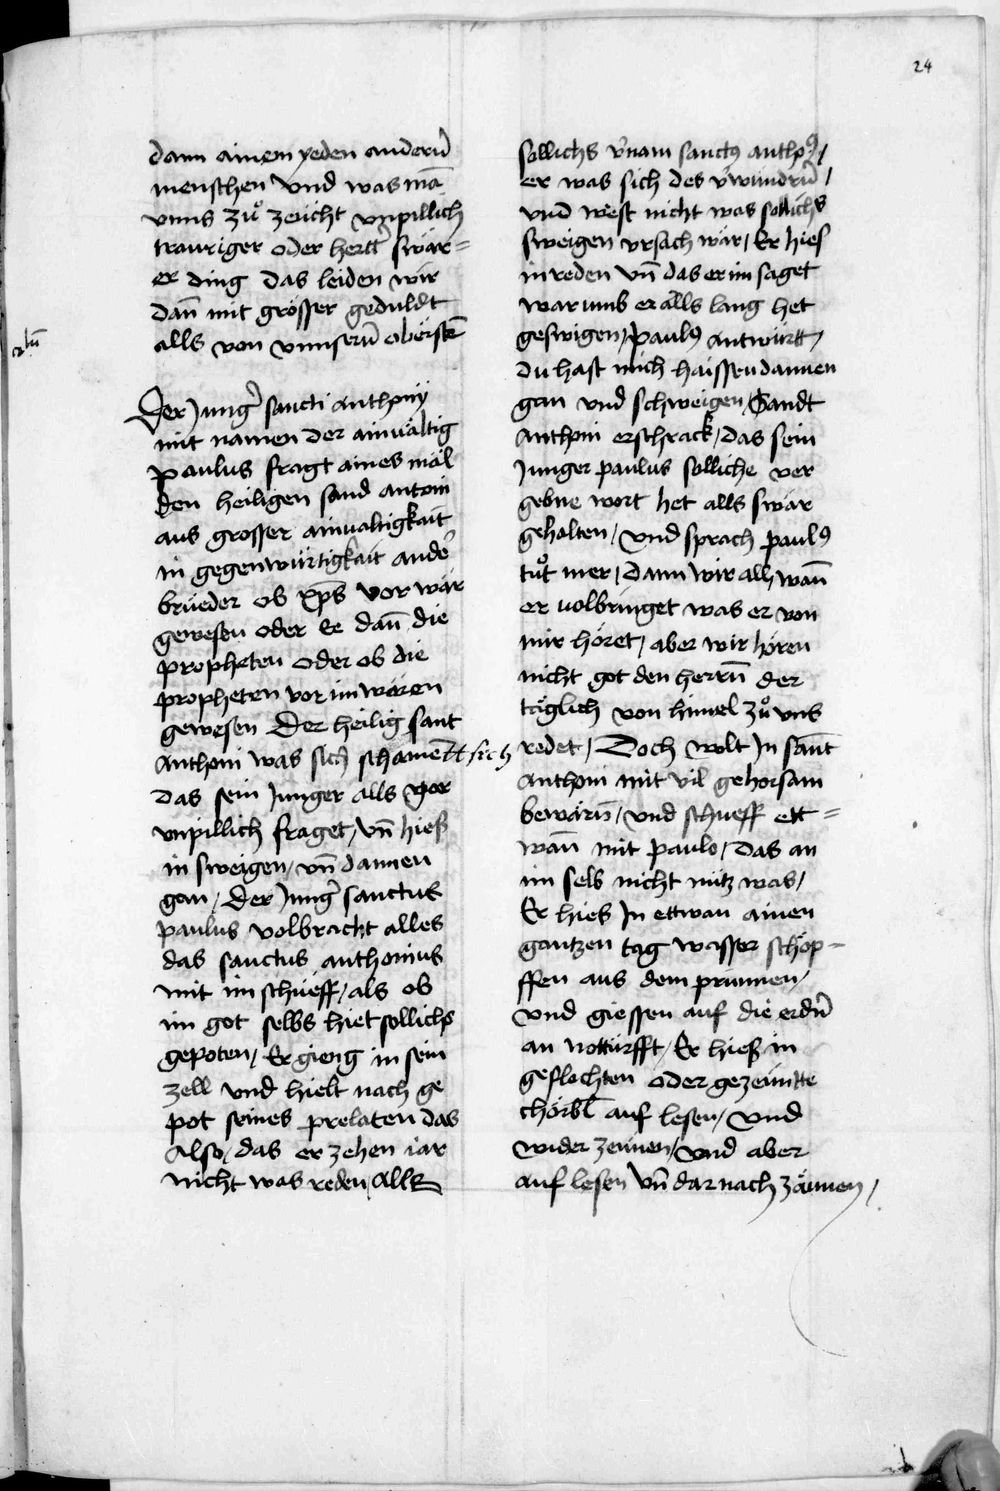 24
dann ainem yeden anderñ
menschen vnd was mā
vnns zů zeücht vnpillich
trauriger oder hertt swär=
er ding das leiden wir
dañ mit grösser geduldt
alls von vnnserñ oberstē
Der Jung̃ sancti anthonÿ
mit namen der ainualtig
paulus fragt aines mäl
den heiligen sand antoni
aus grosser ainualtigkait
in gegenwürtigkait ander̃
brüeder ob xp̄s vor wär
gewesen oder ee dañ die
propheten oder ob die
propheten vor im wären
gewesen Der heilig sant
Anthoni was sich schamētt sich
das sein Junger alls gar
vnpillich fraget / vñ hieß
in sweigen / vñ dannen
gan / Der Jung̃ sanctus
paulus volbracht alles
das sanctus anthonius
mit im schüeff / als ob
im got selbs hiet sollichs
gepoten / Er gieng in sein
zell vnd hielt nach ge
pot seines prelaten das
Also / das er zehen iar
nicht was reden / Alls
sollichs v̄nam sanctꝰ anthoꝰ /
er was sich des v̄wundrñ /
vnd west nicht was sollichs
sweigen vrsach wär / Er hies
in reden vñ das er im saget
warumb er alls lang het
geswigen / paulꝰ antwürtt /
du hast mich haissen dannen
gan vnd schweigen / Sandt
Anthoni erschrack / das sein
Junger paulus solliche ver
gebne wort het alls swär
gehalten / vnd sprach paulꝰ
tůt mer / dann wir all / wañ
er volbringet was er von
mir höret / aber wir hören
nicht got den herrñ der
täglich von himel zů vns
redet / Doch wolt Jn sāt
Anthoni mit vil gehorsam
bewärñ / vnd schueff ett=
wañ mit paulo / das an
im selb nicht nütz was /
Er hies Jn ettwan ainen
gantzen tag wasser schöp=
ffen aus dem prunnen /
vnd giessen auf die erdñ
an notturfft / Er hieß in
geflochten oder gezeünte
chörbl auf lesen / vnd
wider zeünen / vnd aber
auf lesen vñ dar nach zäunen /